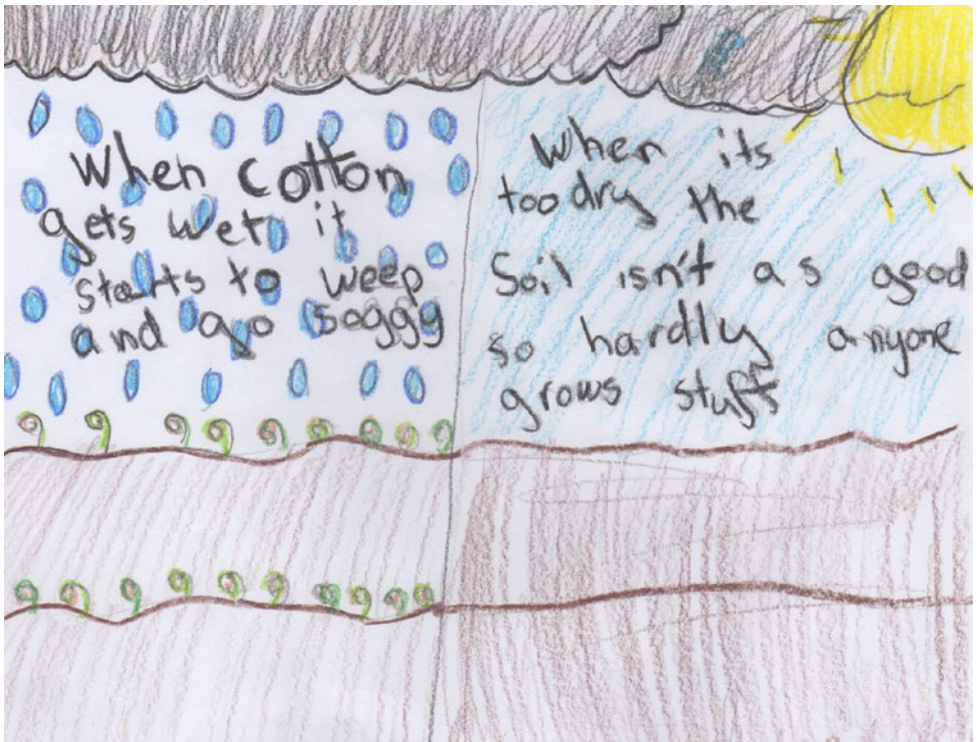 When cotton
gets wet it
starts to weep
and go soggy
When its
too dry the
Soil isn't as good
so hardly anyone
grows stuff